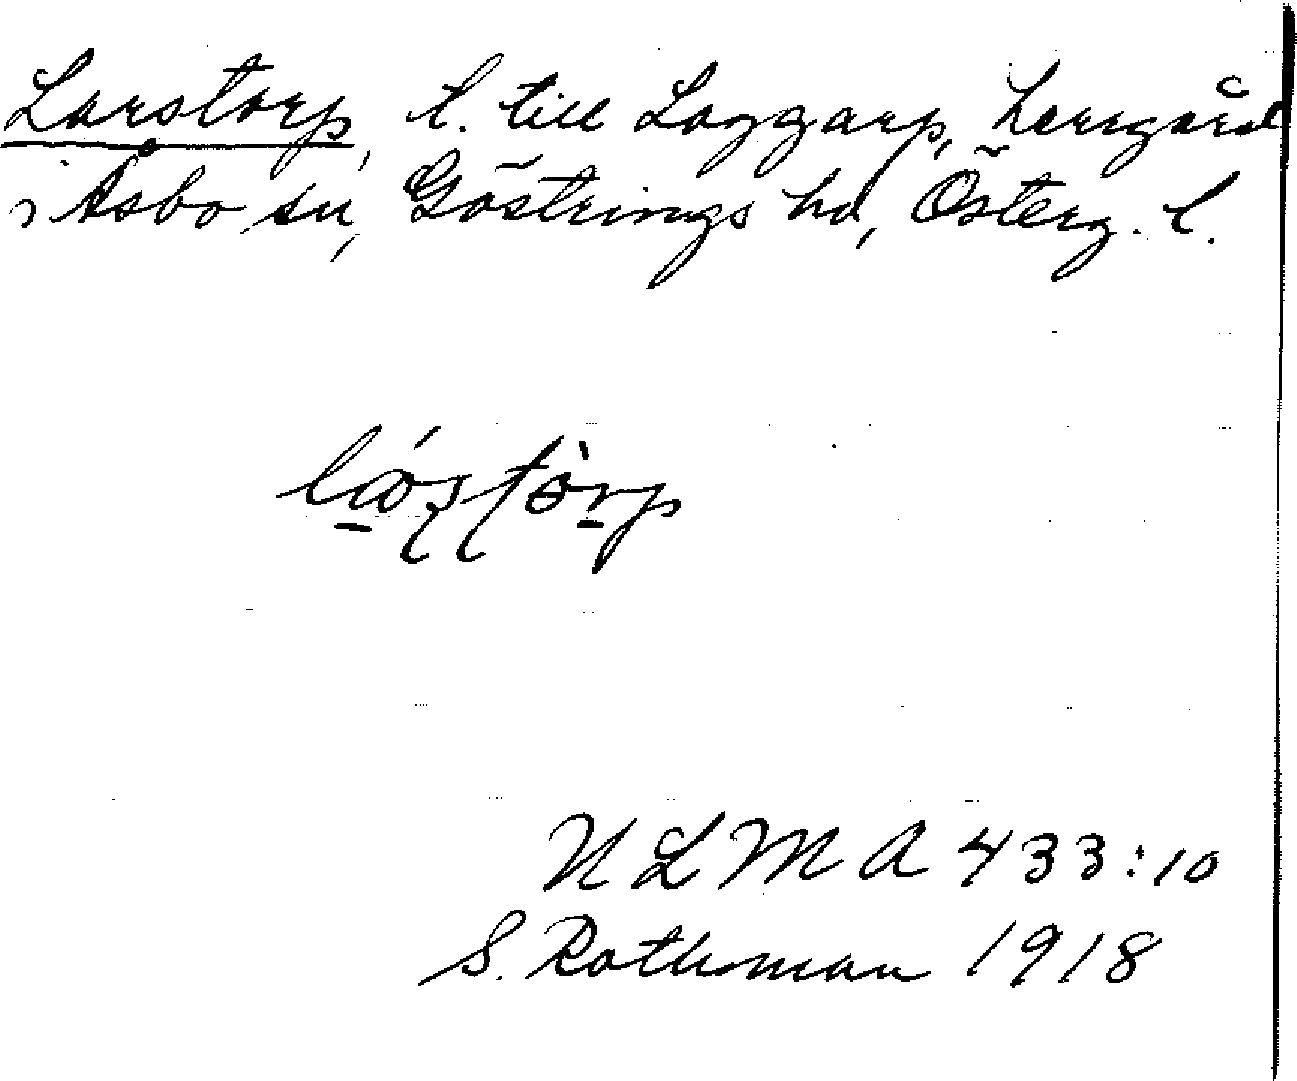 Larstorp, t. till Laggarp, herrgård
i Åsbo sn, Göstrings hd, Österg. l.
ULMA 433:10
S. Rothman 1918